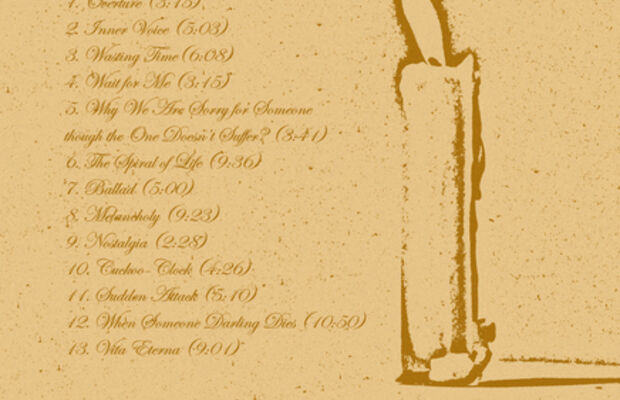 1. Overture (3:15)
2. Inner Voice (5:03)
3. Wasting Time (6:08)
4. Wait for Me (3:15)
5. Why We Are Sorry for Someone
though the One Doesn't Suffer? (3:41)
6. The Spiral of Life (9:36)
7. Ballad (5:00)
8. Melancholy (9:23)
9. Nostalgia (2:28)
10. Cuckoo-Clock (4:26)
11. Sudden Attack (5:10)
12. When Someone Darling Dies (10:50)
13. Vita Eterna (9:01)